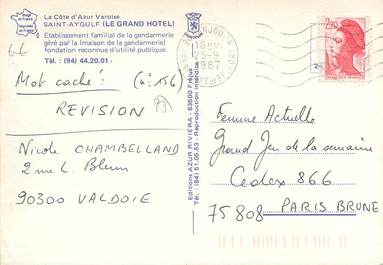 La Côte d'Azur Varoise
SAINT-AYGULF (LE GRAND HOTEL)
Etablissement familial de la gendarmerie
géré par la (maison de la gendarmerie)
fondation reconnue d'utilité publique.
Tél. : (94) 44.20.01 -
Mot caché : (n° 156)
REVISION
Nicole CHAMBELLAND
2 rue L. Blum
90300 VALDOIE
Editions AZUR RIVIERA - 83600 Fréjus
Tél. : (94) 51.05.53 - Reproduction interdite
18H
1987
2,20
Femme Actuelle
Grand Jeu de la semaine
Cedex 866
75808 PARIS BRUNE